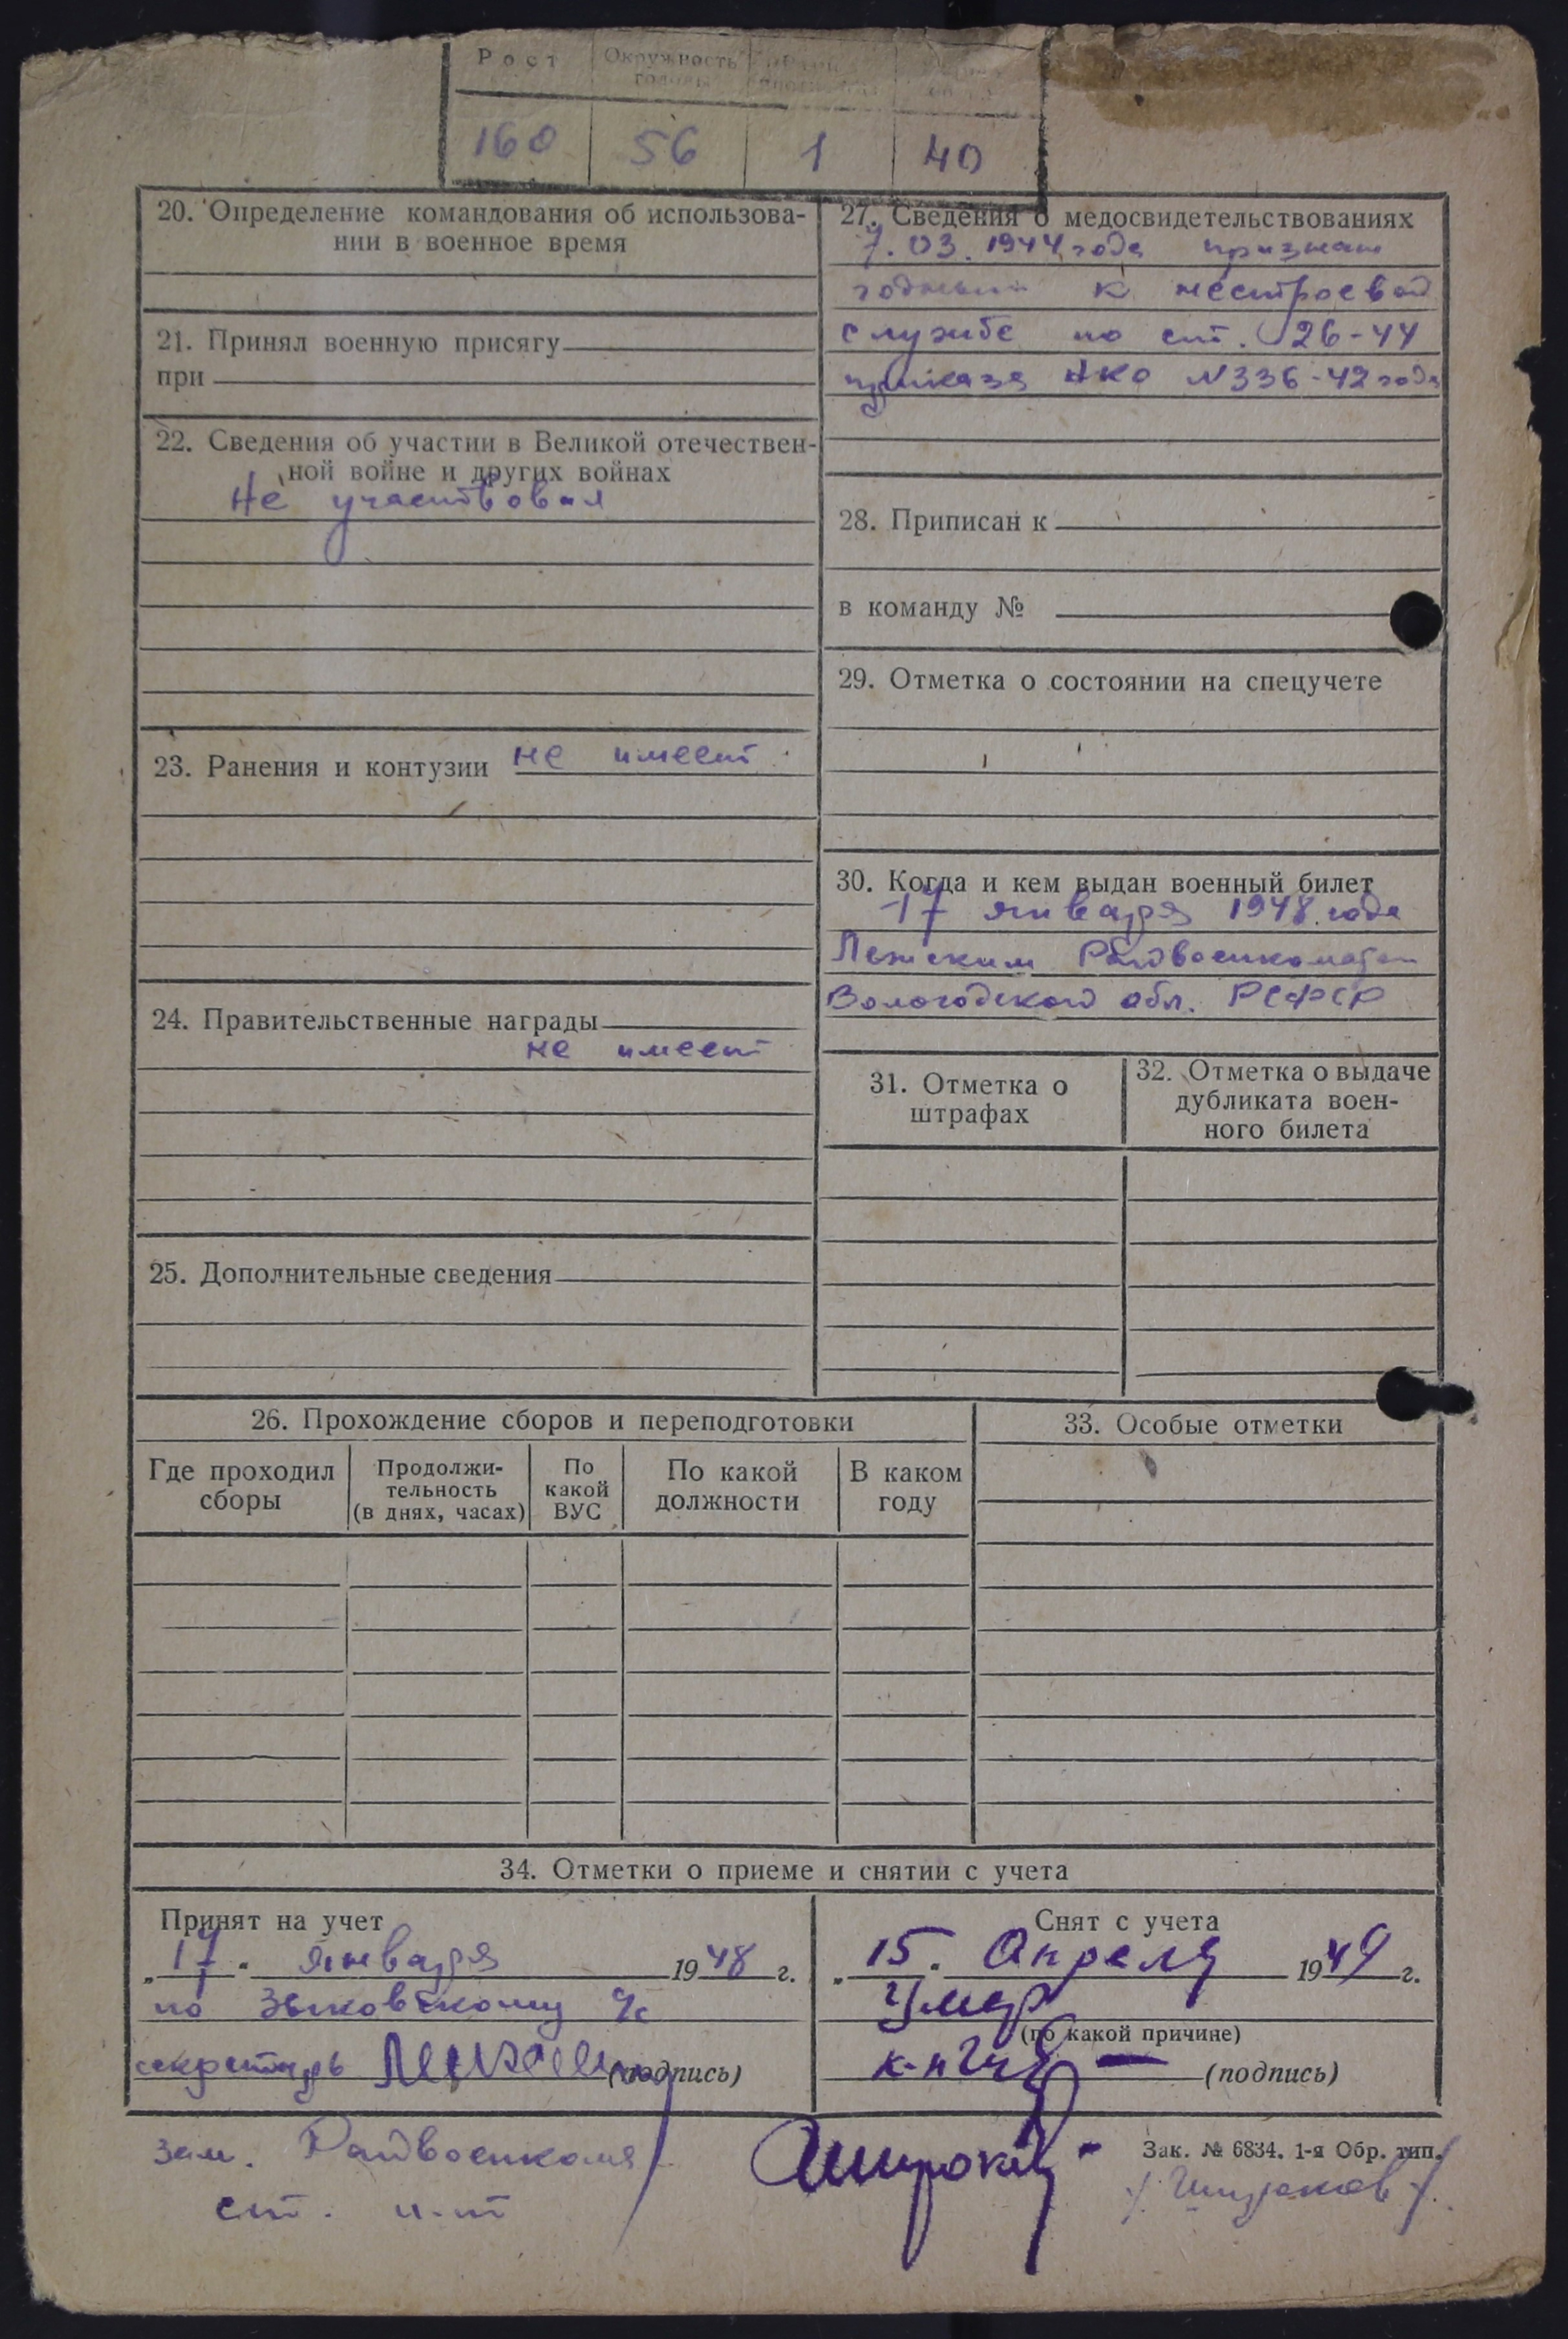 Рост Окружность головы
160 56 1 40
20. Определение командования об использова-
нии в военное время
21. Принял военную присягу
при
22. Сведения об участии в Великой отечествен-
ной войне и других войнах
Не участвовал
23. Ранения и контузии не имеет
24. Правительственные награды
не имеет
25. Дополнительные сведения
27. Сведения о медосвидетельствованиях
7.03.1944 года признан
годным к нестроевой
службе по ст. 26-44
приказа НКО N336-42 года
28. Приписан к
в команду №
29. Отметка о состоянии на спецучете
30. Когда и кем выдан военный билет
17 января 1948 года
Лежским Райвоенкоматом
Вологодской обл. РСФСР
31. Отметка о
штрафах
32. Отметка о выдаче
дубликата воен-
ного билета
26. Прохождение сборов и переподготовки
Где проходил
сборы
Продолжи-
тельность
(в днях, часах)
По
какой
ВУС
По какой
должности
В каком
году
33. Особые отметки
34. Отметки о приеме и снятии с учета
Принят на учет
„17“ января 1948 г.
по Зыковскому с/с
секретарь (подпись)
Снят с учета
„15“ Апреля 1949 г.
Умер
(по какой причине)
к-н (подпись)
Зак. № 6834. 1-я Обр. тип.
зам. Райвоенкома
ст. л-т
Широков
/Широков/